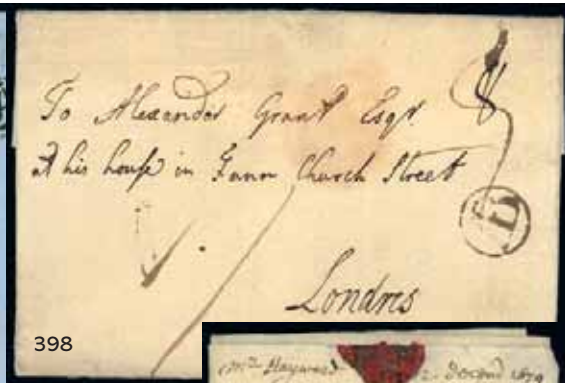 To Alexander Grant Esqr.
at his house in Fann Church Street
Londres
398
Hayward